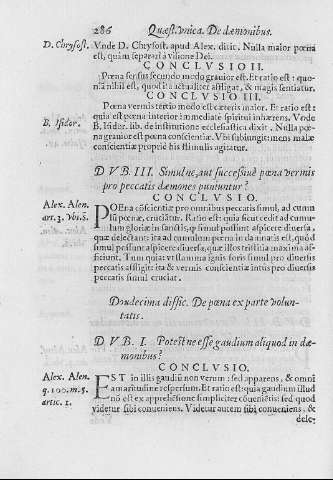 286 Quæst. vnica. De dæmonibus.
D. Chrysost. Vnde D. Chrysost. apud Alex. dixit. Nulla maior pœna
est, quàm separari à visione Dei.
CONCLVSIO II.
Pœna sensus secundo modo grauior est. Et ratio est: quo-
nã nihil est, quod ita actualiter affligat, & magis sentiatur.
CONCLVSIO III.
Pœna vermis tertio modo est cæteris maior. Et ratio est:
quia est pœna interior: immediatè spiritui inhærens. Vnde
B. Isidor. B. Isidor. lib. de institutione ecclesiastica dixit. Nulla pœ-
na grauior est pœna conscientiæ. Vbi subiungit: mens malæ
conscientiæ proprijs stimulis agitatur.
D V B. III. Simulne, aut successiuè pœna vermis
pro peccatis dæmones puniuntur?
CONCLVSIO.
Alex. Alen.
art. 3. vbi. S.
POEna cõscientiæ pro omnibus peccatis simul, ad cumu
lũ pœnæ, cruciatur. Ratio est: quia sicut cedit ad cumu-
lum gloriæ in sanctis, q̃ simul possunt aspicere diuersa,
quæ delectant: ita ad cumulum pœnæ in damnatis est, quòd
simul possunt aspicere diuersa, quæ illos tristitia maxima af-
ficiunt. Tum quia vt flamma ignis foris simul pro diuersis
peccatis affligit: ita & vermis conscientiæ intus pro diuersis
simul cruciat.
Duodecima diffic. De pœna ex parte volun-
tatis.
D V B. I. Potestne esse gaudium aliquod in dæ-
monibus?
CONCLVSIO.
Alex. Alen.
q. 100. m. 5.
artic. 1.
EST in illis gaudiũ non verum: sed apparens, & omni
amaritudine respersum. Et ratio est: quia gaudium illud
nõ est ex apprehẽsione simpliciter cõueniẽtis: sed quod
videtur sibi conueniens. Videtur autem sibi conueniens, &
dele-